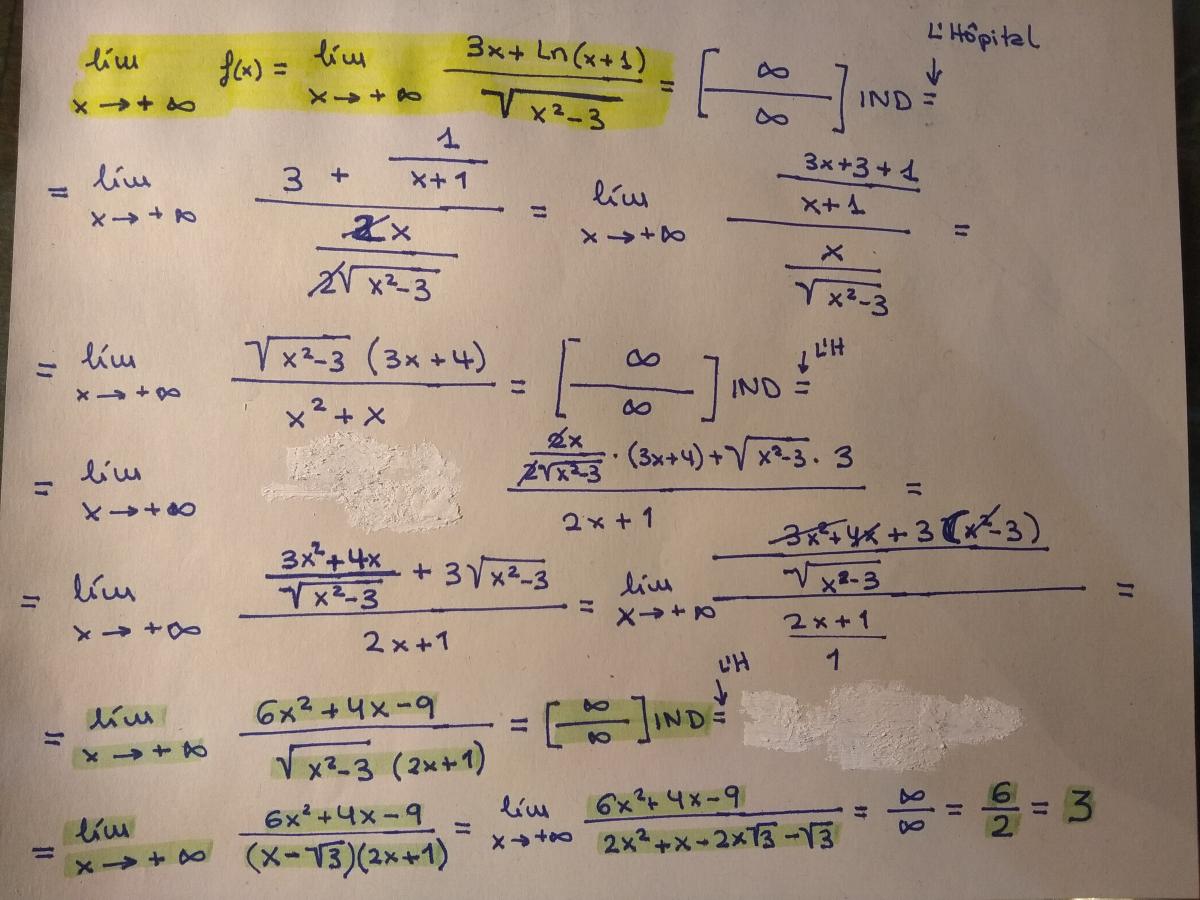 L'Hôpital
lím x→+∞ f(x) = lím x→+∞ (3x + Ln(x+1)) / √(x²-3) = [∞/∞] IND =
= lím x→+∞ (3 + 1/(x+1)) / (2x / (2√(x²-3))) = lím x→+∞ ((3x+3+1)/(x+1)) / (x/√(x²-3)) =
= lím x→+∞ (√(x²-3) (3x+4)) / (x²+x) = [∞/∞] IND = L'H
= lím x→+∞ ((2x / (2√(x²-3))) · (3x+4) + √(x²-3) · 3) / (2x+1) =
= lím x→+∞ ((3x²+4x)/√(x²-3) + 3√(x²-3)) / (2x+1) = lím x→+∞ ((3x²+4x+3(x²-3)) / √(x²-3)) / ((2x+1)/1) =
= lím x→+∞ (6x²+4x-9) / (√(x²-3) (2x+1)) = [∞/∞] IND = L'H
= lím x→+∞ (6x²+4x-9) / ((x-√3)(2x+1)) = lím x→+∞ (6x²+4x-9) / (2x²+x-2x√3-√3) = ∞/∞ = 6/2 = 3